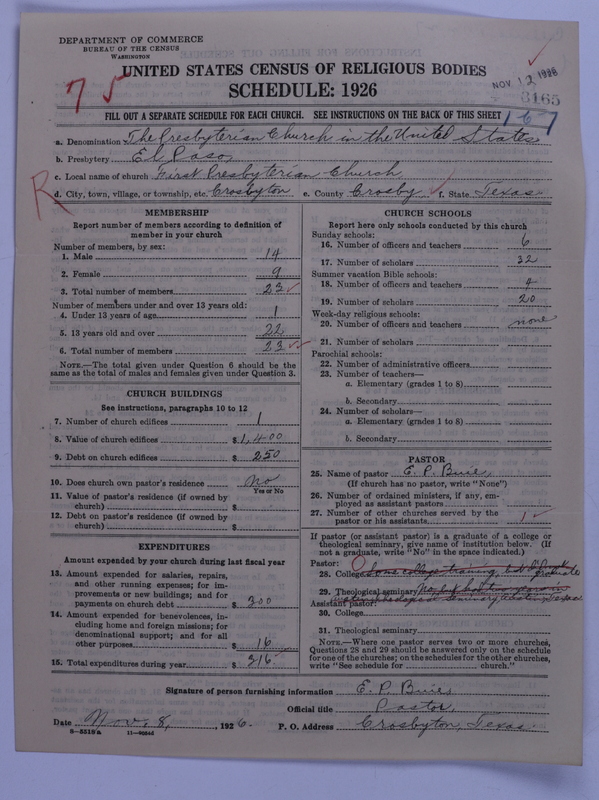 DEPARTMENT OF COMMERCE
BUREAU OF THE CENSUS
WASHINGTON
UNITED STATES CENSUS OF RELIGIOUS BODIES
SCHEDULE: 1926
NOV 12 1926
3165
75
167
FILL OUT A SEPARATE SCHEDULE FOR EACH CHURCH. SEE INSTRUCTIONS ON THE BACK OF THIS SHEET
a. Denomination The Presbyterian Church in the United States
b. Presbytery El Paso
c. Local name of church First Presbyterian Church
R
d. City, town, village, or township, etc. Crosbyton e. County Crosby f. State Texas
MEMBERSHIP
Report number of members according to definition of
member in your church
Number of members, by sex:
1. Male 14
2. Female 9
3. Total number of members 23
Number of members under and over 13 years old:
4. Under 13 years of age 1
5. 13 years old and over 22
6. Total number of members 23
NOTE.—The total given under Question 6 should be the
same as the total of males and females given under Question 3.
CHURCH BUILDINGS
See instructions, paragraphs 10 to 12
7. Number of church edifices 1
8. Value of church edifices $1,400
9. Debt on church edifices $250
10. Does church own pastor's residence No
Yes or No
11. Value of pastor's residence (if owned by
church) $
12. Debt on pastor's residence (if owned by
church) $
EXPENDITURES
Amount expended by your church during last fiscal year
13. Amount expended for salaries, repairs,
and other running expenses; for im-
provements or new buildings; and for
payments on church debt $300
14. Amount expended for benevolences, in-
cluding home and foreign missions; for
denominational support; and for all
other purposes $16
15. Total expenditures during year $316
CHURCH SCHOOLS
Report here only schools conducted by this church
Sunday schools:
16. Number of officers and teachers 6
17. Number of scholars 32
Summer vacation Bible schools:
18. Number of officers and teachers 4
19. Number of scholars 20
Week-day religious schools:
20. Number of officers and teachers none
21. Number of scholars
Parochial schools:
22. Number of administrative officers
23. Number of teachers—
a. Elementary (grades 1 to 8)
b. Secondary
24. Number of scholars—
a. Elementary (grades 1 to 8)
b. Secondary
PASTOR
25. Name of pastor E. P. Buie
(If church has no pastor, write "None")
26. Number of ordained ministers, if any, em-
ployed as assistant pastors
27. Number of other churches served by the
pastor or his assistants 1
If pastor (or assistant pastor) is a graduate of a college or
theological seminary, give name of institution below. (If
not a graduate, write "No" in the space indicated.)
Pastor:
28. College Some college training, but did not graduate
29. Theological seminary
Assistant pastor:
30. College
31. Theological seminary
NOTE.—Where one pastor serves two or more churches,
Questions 28 and 29 should be answered only on the schedule
for one of the churches; on the schedules for the other churches,
write "See schedule for church."
Signature of person furnishing information E. P. Buie
Official title Pastor,
Date Nov. 8, 1926. P. O. Address Crosbyton, Texas
8-5519a 11-9054d